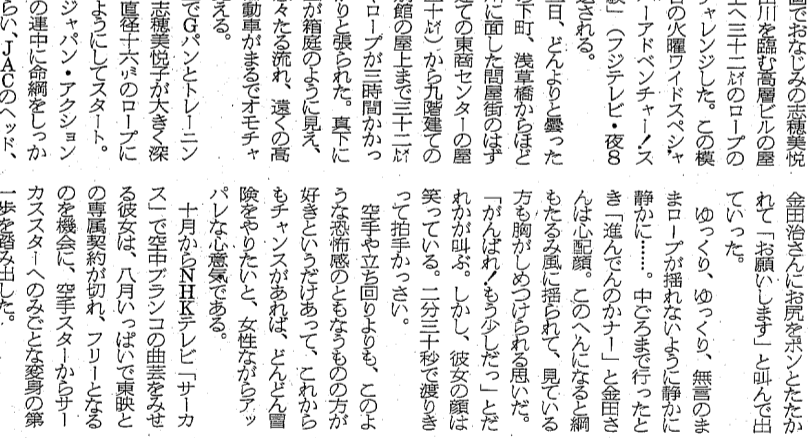 画でおなじみの志穂美悦
田川を臨む高層ビルの屋
上へ三十二㍍のロープの
チャレンジした。この模
の火曜ワイドスペシャ
ーアドベンチャー！ス
」（フジテレビ・夜８
される。
日、どんよりと曇った
の下町、浅草橋からほど
川に面した問屋街のはず
建ての東商センターの屋
十㍍）から九階建ての
館の屋上まで三十二㍍
ロープが三時間かかっ
りと張られた。真下に
が箱庭のように見え、
々たる流れ、遠くの高
動車がまるでオモチャ
える。
でＧパンとトレーニン
志穂美悦子が大きく深
直径十六㍉のロープに
ようにしてスタート。
ジャパン・アクション
の連中に命綱をしっか
らい、ＪＡＣのヘッド、
金田治さんにお尻をポンとたたか
れて「お願いします」と叫んで出
ていった。
ゆっくり、ゆっくり、無言のま
まロープが揺れないように静かに
静かに……。中ごろまで行ったと
き「進んでんのかナー」と金田さ
んは心配顔。このへんになると綱
もたるみ風に揺られて、見ている
方も胸がしめつけられる思いだ。
「がんばれ！もう少しだっ」とだ
れかが叫ぶ。しかし、彼女の顔は
笑っている。二分三十秒で渡りき
って拍手かっさい。
空手や立ち回りよりも、このよ
うな恐怖感のともなうものの方が
好きというだけあって、これから
もチャンスがあれば、どんどん冒
険をやりたいと、女性ながらアッ
パレな心意気である。
十月からＮＨＫテレビ「サーカ
ス」で空中ブランコの曲芸をみせ
る彼女は、八月いっぱいで東映と
の専属契約が切れ、フリーとなる
のを機会に、空手スターからサー
カススターへのみごとな変身の第
一歩を踏み出した。